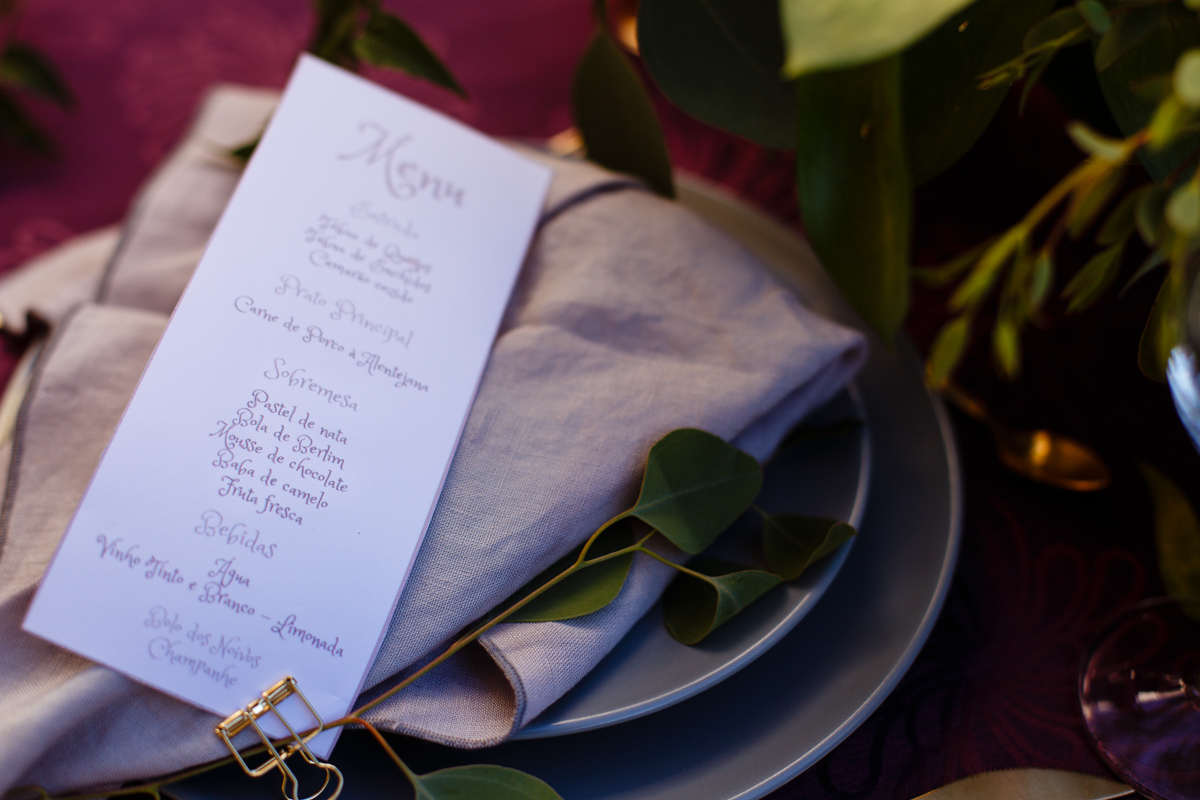 Menu
Entrada
Tábua de Queijos
Tábua de Enchidos
Camarão cozido
Prato Principal
Carne de Porco à Alentejana
Sobremesa
Pastel de nata
Bola de Bertim
Mousse de chocolate
Baba de camelo
Fruta fresca
Bebidas
Água
Vinho Tinto e Branco – Limonada
Bolo dos Noivos
Champanhe